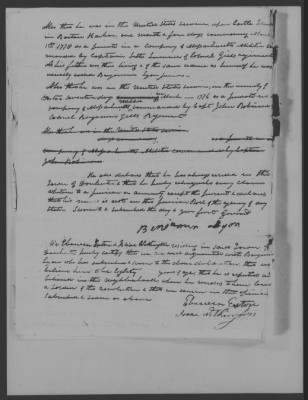 Also that he was in the United States service upon Castle Island
in Boston Harbor, one month & four days commencing March
1st 1778 as a private in a Company of Massachusetts Militia
commanded by Captain Colonel regiment
his father was then living & of the same name as himself he was
usually called Benjamin Lyon junior.
Also that he was in the United States service, in the vicinity of
Boston seventeen days March in 1776 as a private in a
company of Massachusetts militia commanded by Capt John Robinson
Colonel Benjamin Gills Regiment
Also that he was in the United States service
as private in a
company of Massachusetts Militia commanded by Captain
John Robinson
He also declares that he has always resided in this
Town of and he hereby relinquishes every claim
whatever to a pension or annuity except the present & declares
that his name is not on the Pension Roll of the agency of any
State. Sworn & subscribed the day & year first aforesaid
Benjamin Lyon
We Ebenezer Eaton & Isaac Withington residing in said Town of
hereby certify that we are well acquainted with Benjamin
Lyon who has subscribed & sworn to the above declaration that we
believe him to be eighty years of age that he is reputed and
believed in the neighbourhood where he resides to have been
a soldier of the revolution & that we concur in that opinion
Subscribed & sworn as above
Ebenezer Eaton
Isaac Withington